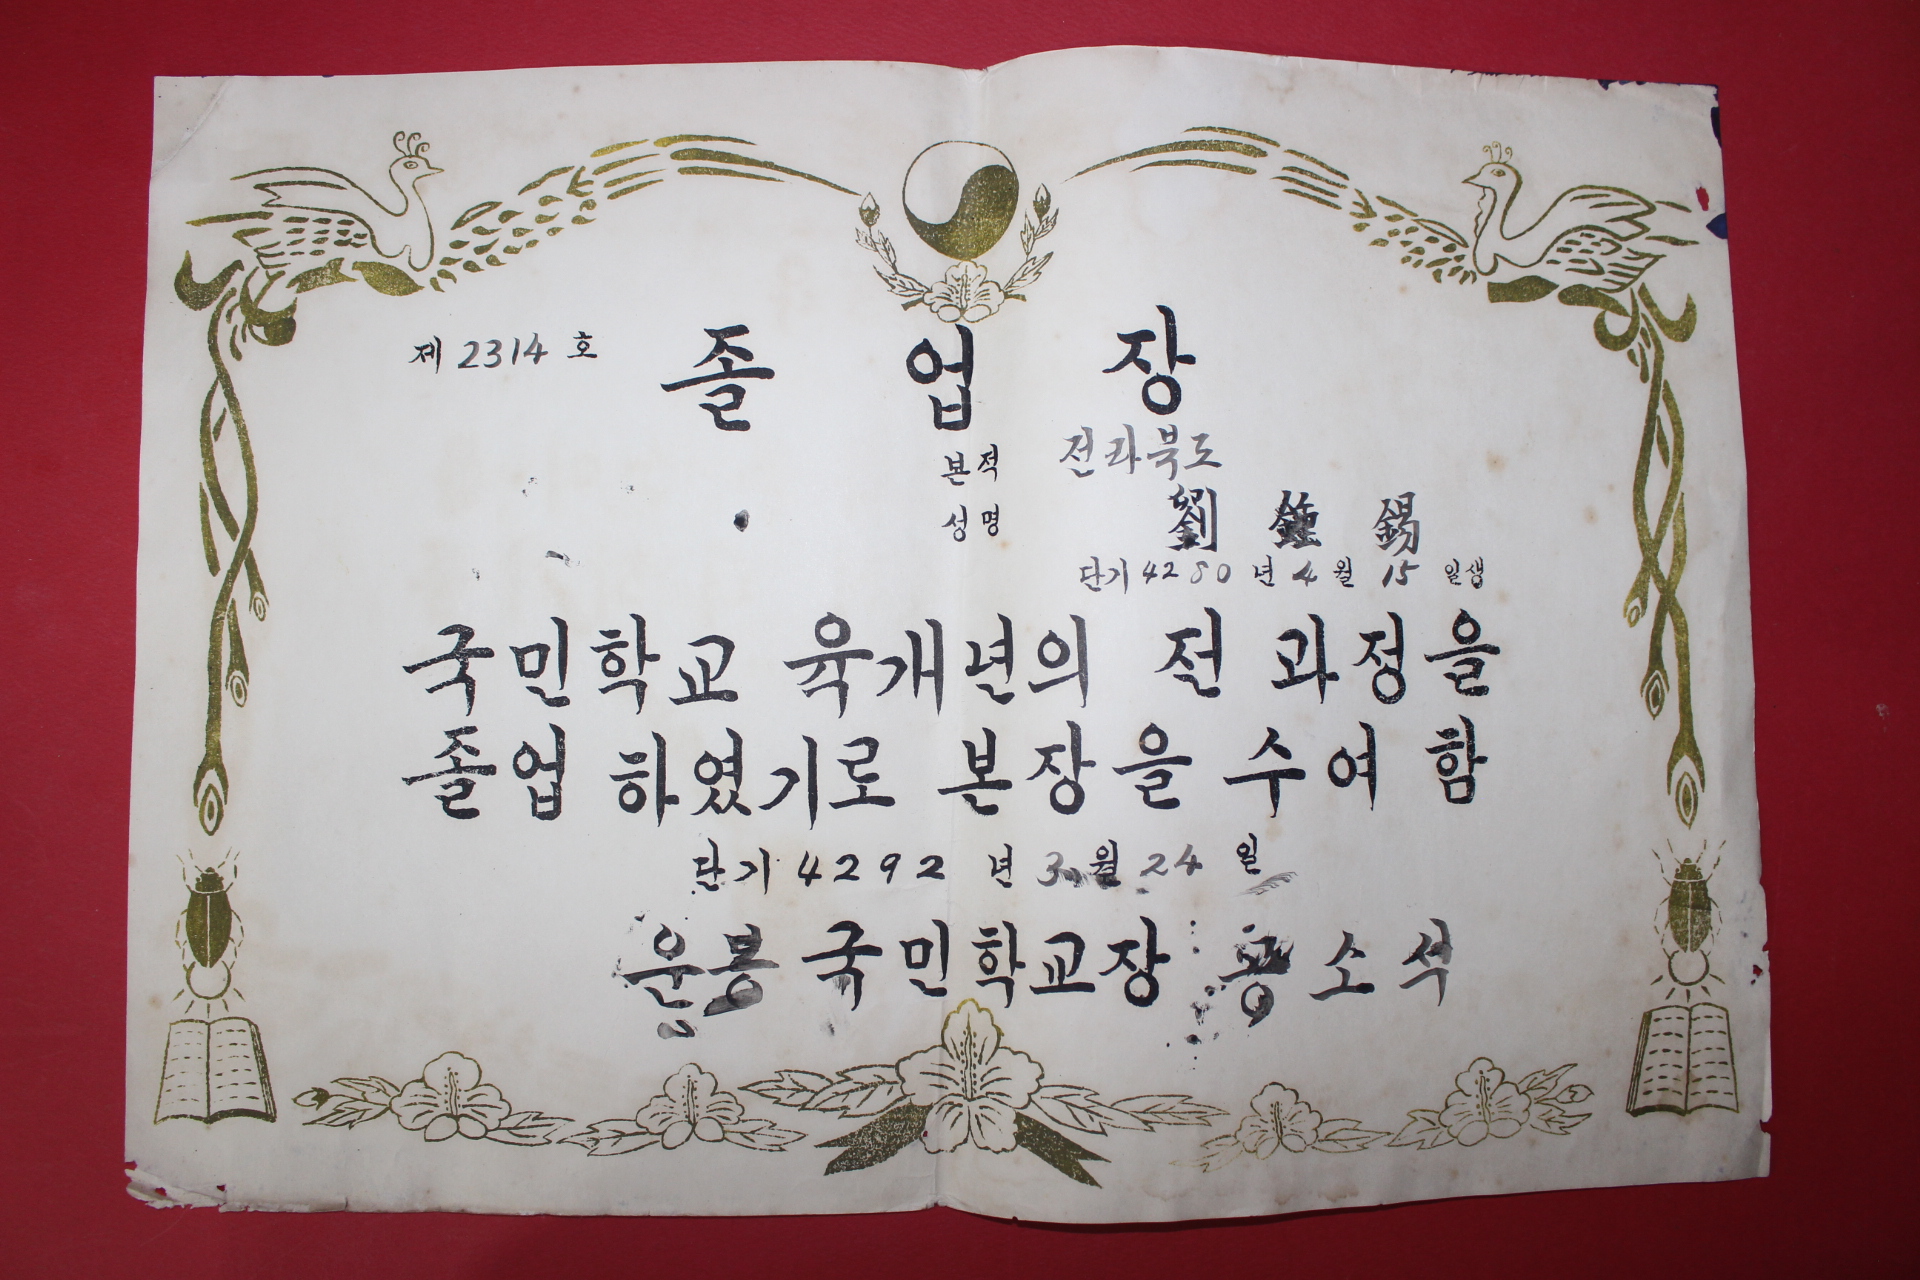 제 2314 호
졸업장
본적 전라북도
성명 劉 鍾 錫
단기 4280 년 4 월 15 일생
국민학교 육개년의 전 과정을
졸업 하였기로 본장을 수여 함
단기 4292 년 3 월 24 일
운봉 국민학교장 소석